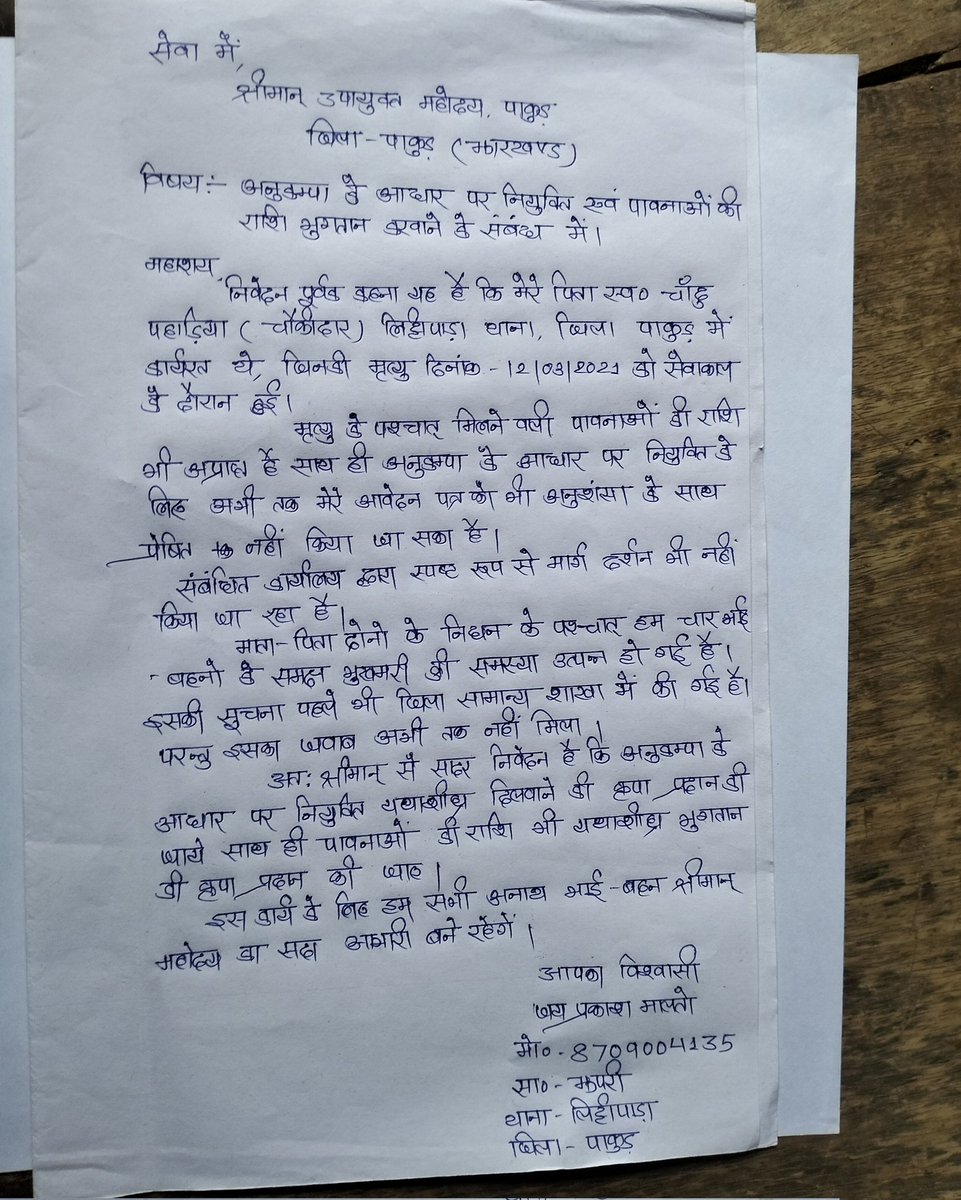 सेवा में,
श्रीमान् उपायुक्त महोदय, पाकुड़
जिला - पाकुड़ (झारखण्ड)
विषय :- अनुकम्पा के आधार पर नियुक्ति एवं पावनाओं की
राशि भुगतान करवाने के संबंध में।
महाशय,
निवेदन पूर्वक कहना यह है कि मेरे पिता स्व० चाँदु
पहाड़िया (चौकीदार) लिट्टीपाड़ा थाना, जिला पाकुड़ में
कार्यरत थे, जिनकी मृत्यु दिनांक - 12/03/2021 को सेवाकाल
के दौरान हुई।
मृत्यु के पश्चात् मिलने वाली पावनाओं की राशि
भी अप्राप्त है साथ ही अनुकम्पा के आधार पर नियुक्ति के
लिए अभी तक मेरे आवेदन पत्र को भी अनुशंसा के साथ
प्रेषित नहीं किया जा सका है।
संबंधित कार्यालय द्वारा स्पष्ट रूप से मार्ग दर्शन भी नहीं
किया जा रहा है।
माता-पिता दोनो के निधन के पश्चात् हम चार भाई
- बहनो के समक्ष भुखमरी की समस्या उत्पन्न हो गई है।
इसकी सुचना पहले भी जिला सामान्य शाखा में की गई है।
परन्तु इसका जवाब अभी तक नहीं मिला।
अतः श्रीमान् से सादर निवेदन है कि अनुकम्पा के
आधार पर नियुक्ति यथाशीघ्र दिलवाने की कृपा प्रदान की
जाये साथ ही पावनाओं की राशि भी यथाशीघ्र भुगतान
की कृपा प्रदान की जाए।
इस कार्य के लिए हम सभी अनाथ भाई-बहन श्रीमान्
महोदय का सदा आभारी बने रहेगें।
आपका विश्वासी
जय प्रकाश मालतो
मो० - 8709004135
सा० - झपरी
थाना - लिट्टीपाड़ा
जिला - पाकुड़